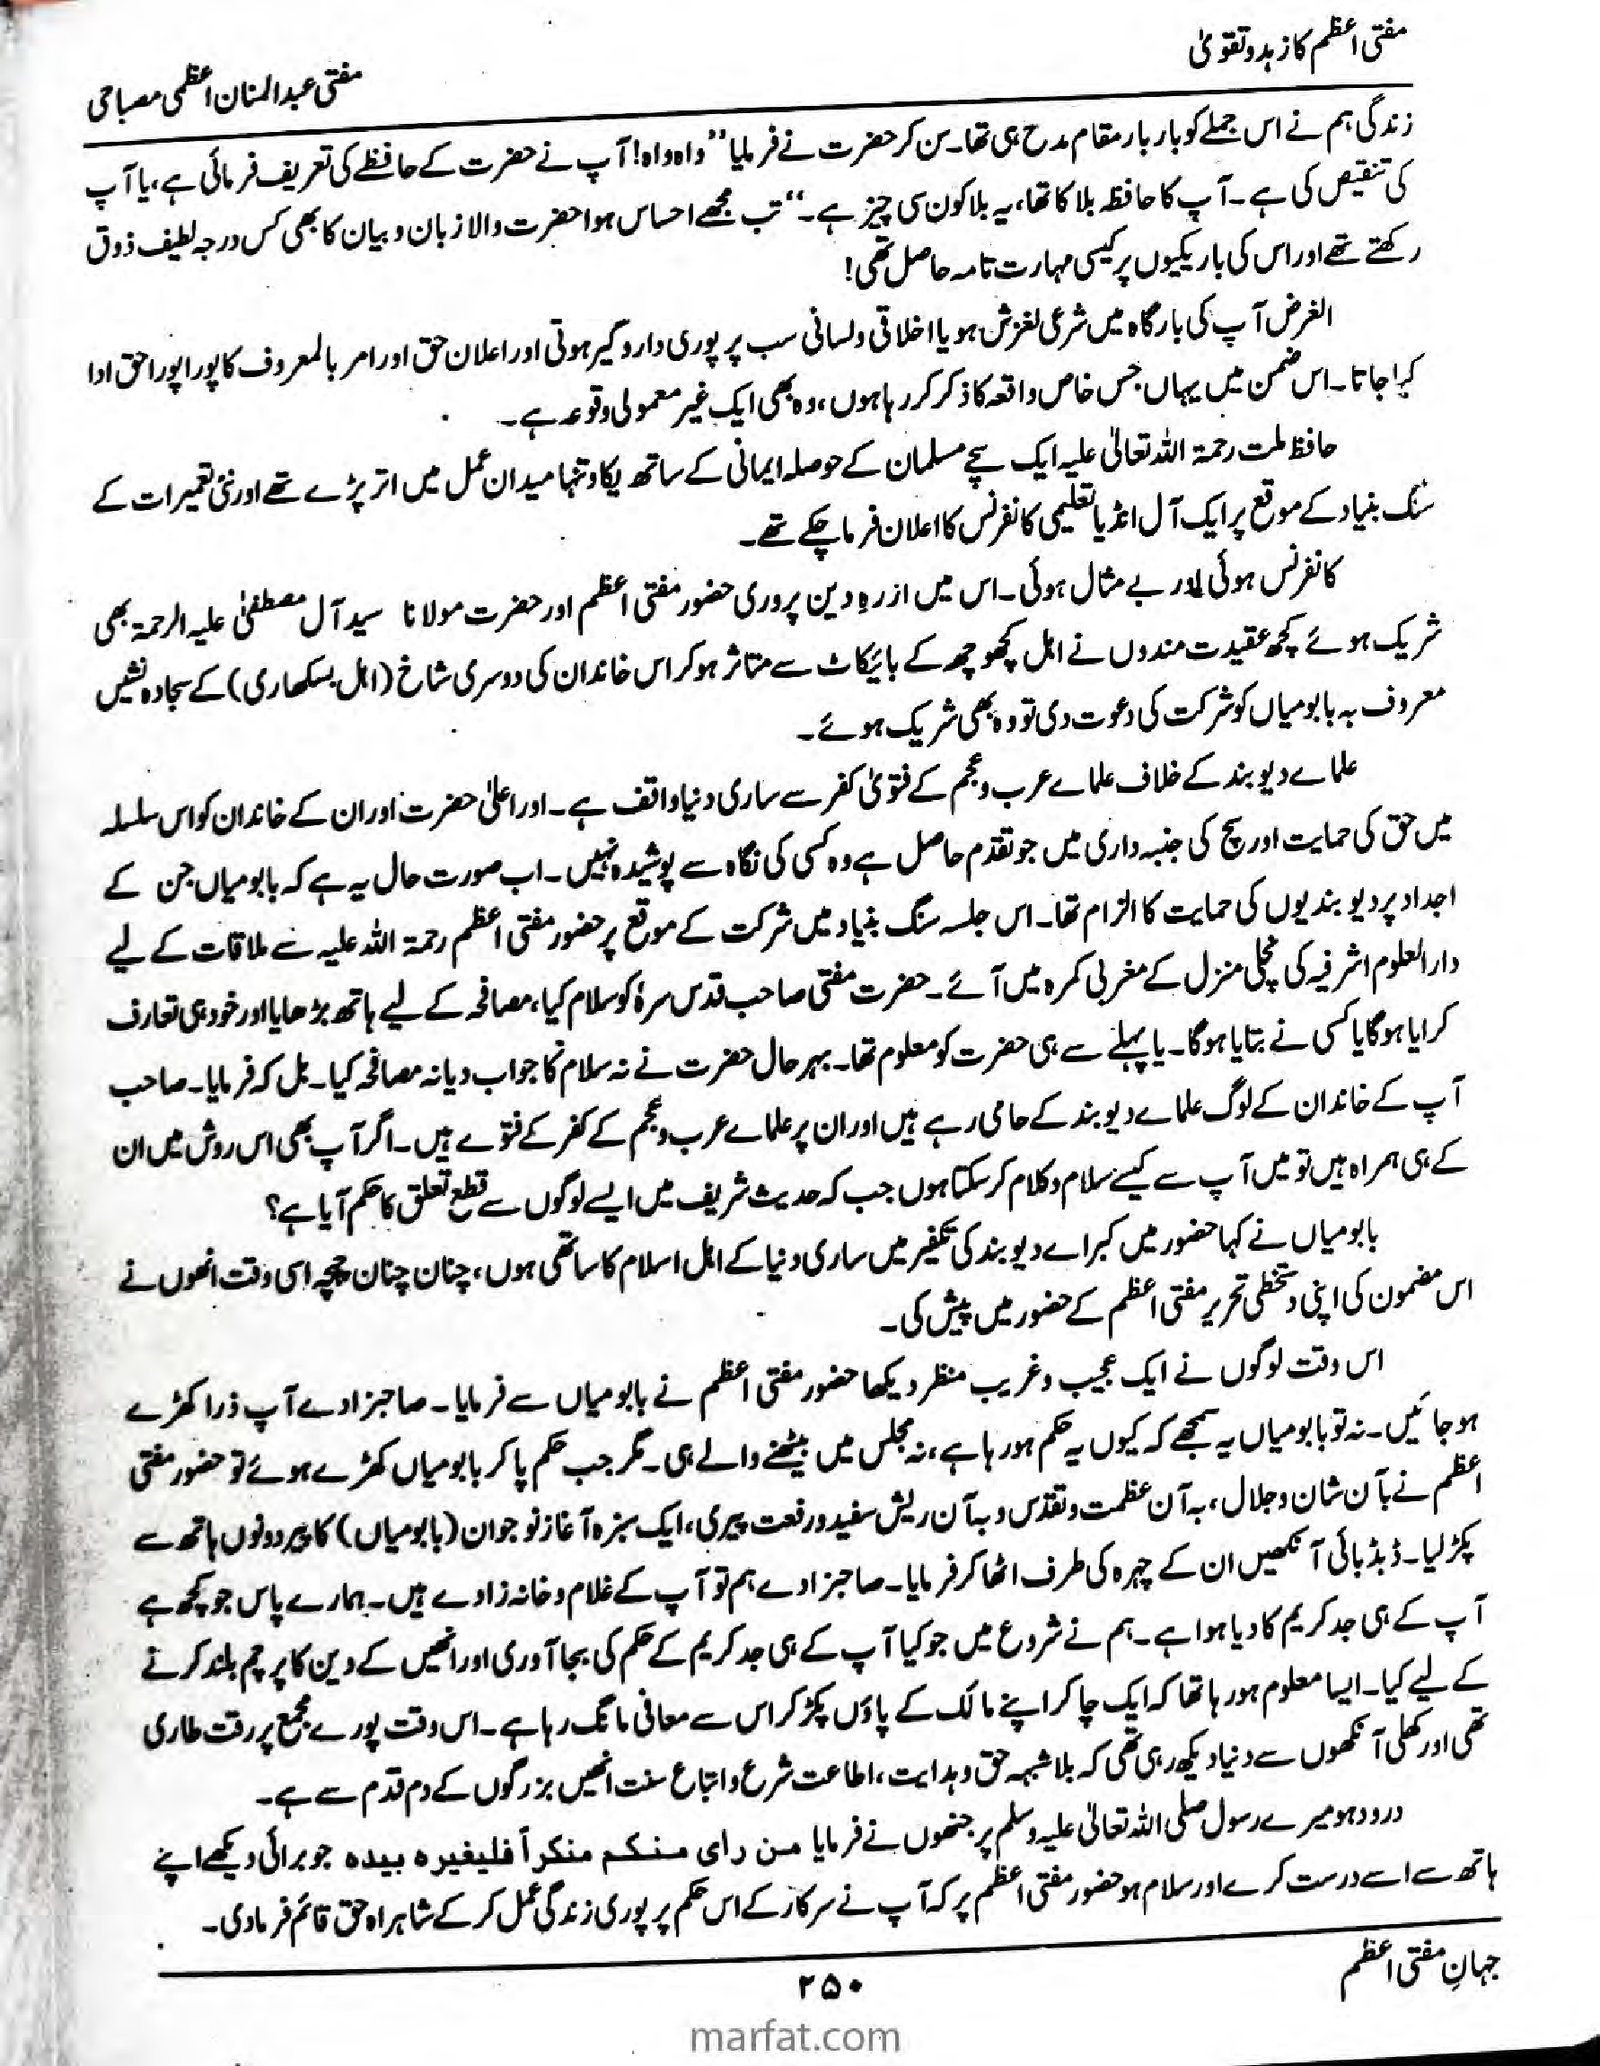 مفتی اعظم کا زہد و تقویٰ
مفتی عبدالمنان اعظمی مصباحی
زندگی ہم نے اس جملے کو بار بار مقام مدح ہی تھا۔ سن کر حضرت نے فرمایا ”واہ واہ! آپ نے حضرت کے حافظے کی تعریف فرمائی ہے، یا آپ
کی تنقیص کی ہے۔ آپ کا حافظہ بلا کا تھا، یہ بلا کون سی چیز ہے۔“ تب مجھے احساس ہوا حضرت والا زبان و بیان کا بھی کس درجہ لطیف ذوق
رکھتے تھے اور اس کی باریکیوں پر کیسی مہارت تامہ حاصل تھی!
الغرض آپ کی بارگاہ میں شرعی لغزش ہو یا اخلاقی ولسانی سب پر پوری دارو گیر ہوتی اور اعلان حق اور امر بالمعروف کا پورا پورا حق ادا
کیا جاتا۔ اس ضمن میں یہاں جس خاص واقعہ کا ذکر کر رہا ہوں، وہ بھی ایک غیر معمولی وقوعہ ہے۔
حافظ ملت رحمۃ اللہ تعالیٰ علیہ ایک سچے مسلمان کے حوصلہ ایمانی کے ساتھ یکا و تنہا میدان عمل میں اتر پڑے تھے اور نئی تعمیرات کے
سنگ بنیاد کے موقع پر ایک آل انڈیا تعلیمی کانفرنس کا اعلان فرما چکے تھے۔
کانفرنس ہوئی اور بے مثال ہوئی۔ اس میں از رہِ دین پروری حضور مفتی اعظم اور حضرت مولانا سید آل مصطفیٰ علیہ الرحمۃ بھی
شریک ہوئے کچھ عقیدت مندوں نے اہل کچھوچھہ کے بائیکاٹ سے متاثر ہو کر اس خاندان کی دوسری شاخ (اہل بسکھاری) کے سجادہ نشیں
معروف بہ بابو میاں کو شرکت کی دعوت دی تو وہ بھی شریک ہوئے۔
علماے دیوبند کے خلاف علماے عرب و عجم کے فتویٰ کفر سے ساری دنیا واقف ہے۔ اور اعلیٰ حضرت اور ان کے خاندان کو اس سلسلہ
میں حق کی حمایت اور سچ کی جنبہ داری میں جو تقدم حاصل ہے وہ کسی کی نگاہ سے پوشیدہ نہیں۔ اب صورت حال یہ ہے کہ بابو میاں جن کے
اجداد پر دیوبندیوں کی حمایت کا الزام تھا۔ اس جلسہ سنگ بنیاد میں شرکت کے موقع پر حضور مفتی اعظم رحمۃ اللہ علیہ سے ملاقات کے لیے
دارالعلوم اشرفیہ کی نچلی منزل کے مغربی کمرہ میں آئے۔ حضرت مفتی صاحب قدس سرہٗ کو سلام کیا، مصافحہ کے لیے ہاتھ بڑھایا اور خود ہی تعارف
کرایا ہوگا یا کسی نے بتایا ہوگا۔ یا پہلے سے ہی حضرت کو معلوم تھا۔ بہر حال حضرت نے نہ سلام کا جواب دیا نہ مصافحہ کیا۔ بل کہ فرمایا۔ صاحب
آپ کے خاندان کے لوگ علماے دیوبند کے حامی رہے ہیں اور ان پر علماے عرب و عجم کے کفر کے فتوے ہیں۔ اگر آپ بھی اس روش میں ان
کے ہی ہمراہ ہیں تو میں آپ سے کیسے سلام و کلام کر سکتا ہوں جب کہ حدیث شریف میں ایسے لوگوں سے قطع تعلق کا حکم آیا ہے؟
بابو میاں نے کہا حضور میں کبراے دیوبند کی تکفیر میں ساری دنیا کے اہل اسلام کا ساتھی ہوں، چنان چنان چہ اسی وقت انھوں نے
اس مضمون کی اپنی دستخطی تحریر مفتی اعظم کے حضور میں پیش کی۔
اس وقت لوگوں نے ایک عجیب و غریب منظر دیکھا حضور مفتی اعظم نے بابو میاں سے فرمایا۔ صاحبزادے آپ ذرا کھڑے
ہو جائیں۔ نہ تو بابو میاں یہ سمجھے کہ کیوں یہ حکم ہو رہا ہے، نہ مجلس میں بیٹھنے والے ہی۔ مگر جب حکم پا کر بابو میاں کھڑے ہوئے تو حضور مفتی
اعظم نے بآن شان و جلال، بہ آن عظمت و تقدس و بہ آن ریش سفید و رفعت پیری، ایک سبزہ آغاز نو جوان (بابو میاں) کا پیر دونوں ہاتھ سے
پکڑ لیا۔ ڈبڈبائی آنکھیں ان کے چہرہ کی طرف اٹھا کر فرمایا۔ صاحبزادے ہم تو آپ کے غلام و خانہ زادے ہیں۔ ہمارے پاس جو کچھ ہے
آپ کے ہی جد کریم کا دیا ہوا ہے۔ ہم نے شروع میں جو کیا آپ کے ہی جد کریم کے حکم کی بجا آوری اور انھیں کے دین کا پرچم بلند کرنے
کے لیے کیا۔ ایسا معلوم ہو رہا تھا کہ ایک چاکر اپنے مالک کے پاؤں پکڑ کر اس سے معافی مانگ رہا ہے۔ اس وقت پورے مجمع پر رقت طاری
تھی اور کھلی آنکھوں سے دنیا دیکھ رہی تھی کہ بلا شبہہ حق و ہدایت، اطاعت شرع و اتباع سنت انھیں بزرگوں کے دم قدم سے ہے۔
درود ہو میرے رسول صلی اللہ تعالیٰ علیہ وسلم پر جنھوں نے فرمایا من رای منکم منکراً فلیغیرہ بیدہ جو برائی دیکھے اپنے
ہاتھ سے اسے درست کرے اور سلام ہو حضور مفتی اعظم پر کہ آپ نے سرکار کے اس حکم پر پوری زندگی عمل کر کے شاہراہ حق قائم فرما دی۔
جہانِ مفتی اعظم
۲۵۰
marfat.com